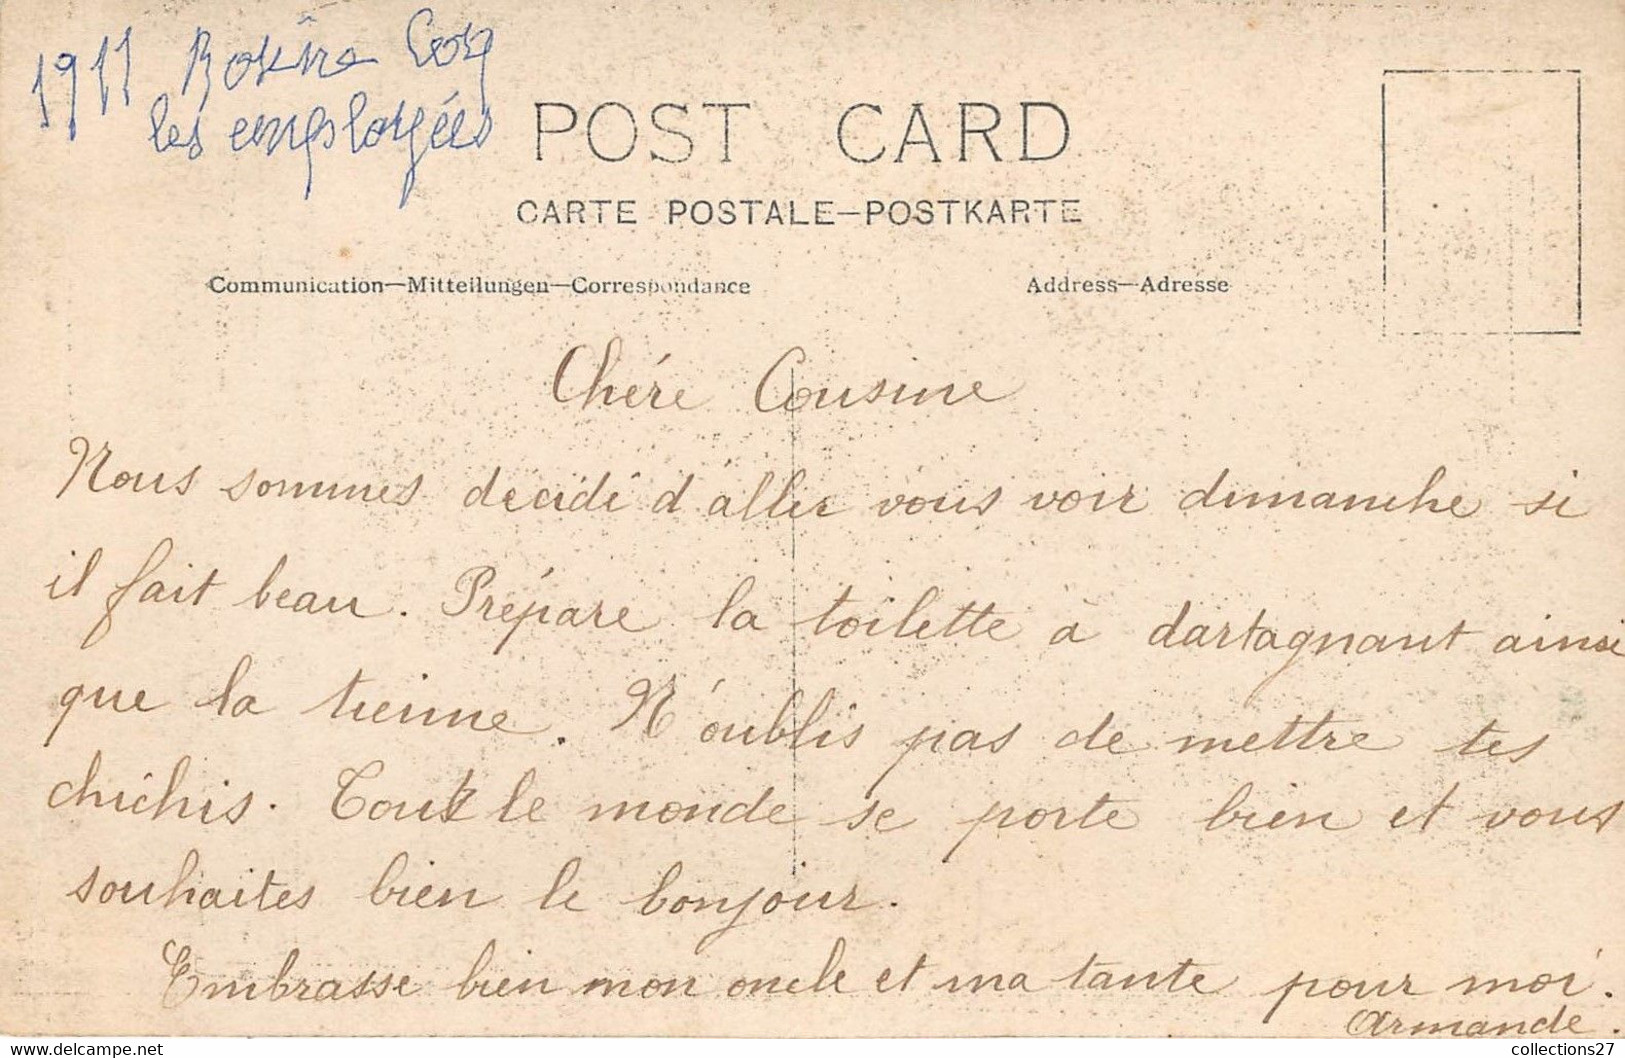 1911
les employées
POST CARD
CARTE POSTALE—POSTKARTE
Communication—Mitteilungen—Correspondance
Address—Adresse
Chére Cousine
Nous sommes decidé d'aller vous voir dimanche si
il fait beau. Prépare la toilette à dartagnant ainsi
que la tienne. N'oublis pas de mettre tes
chichis. Tout le monde se porte bien et vous
souhaites bien le bonjour.
Embrasse bien mon oncle et ma tante pour moi.
Armande.
collections27